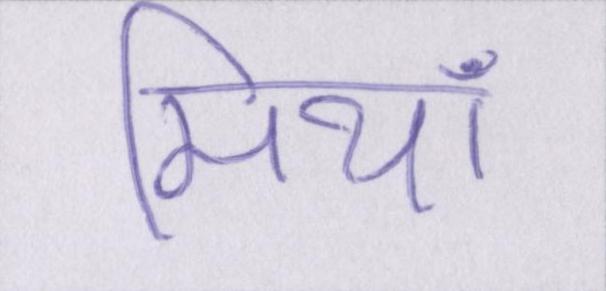 मियाँ